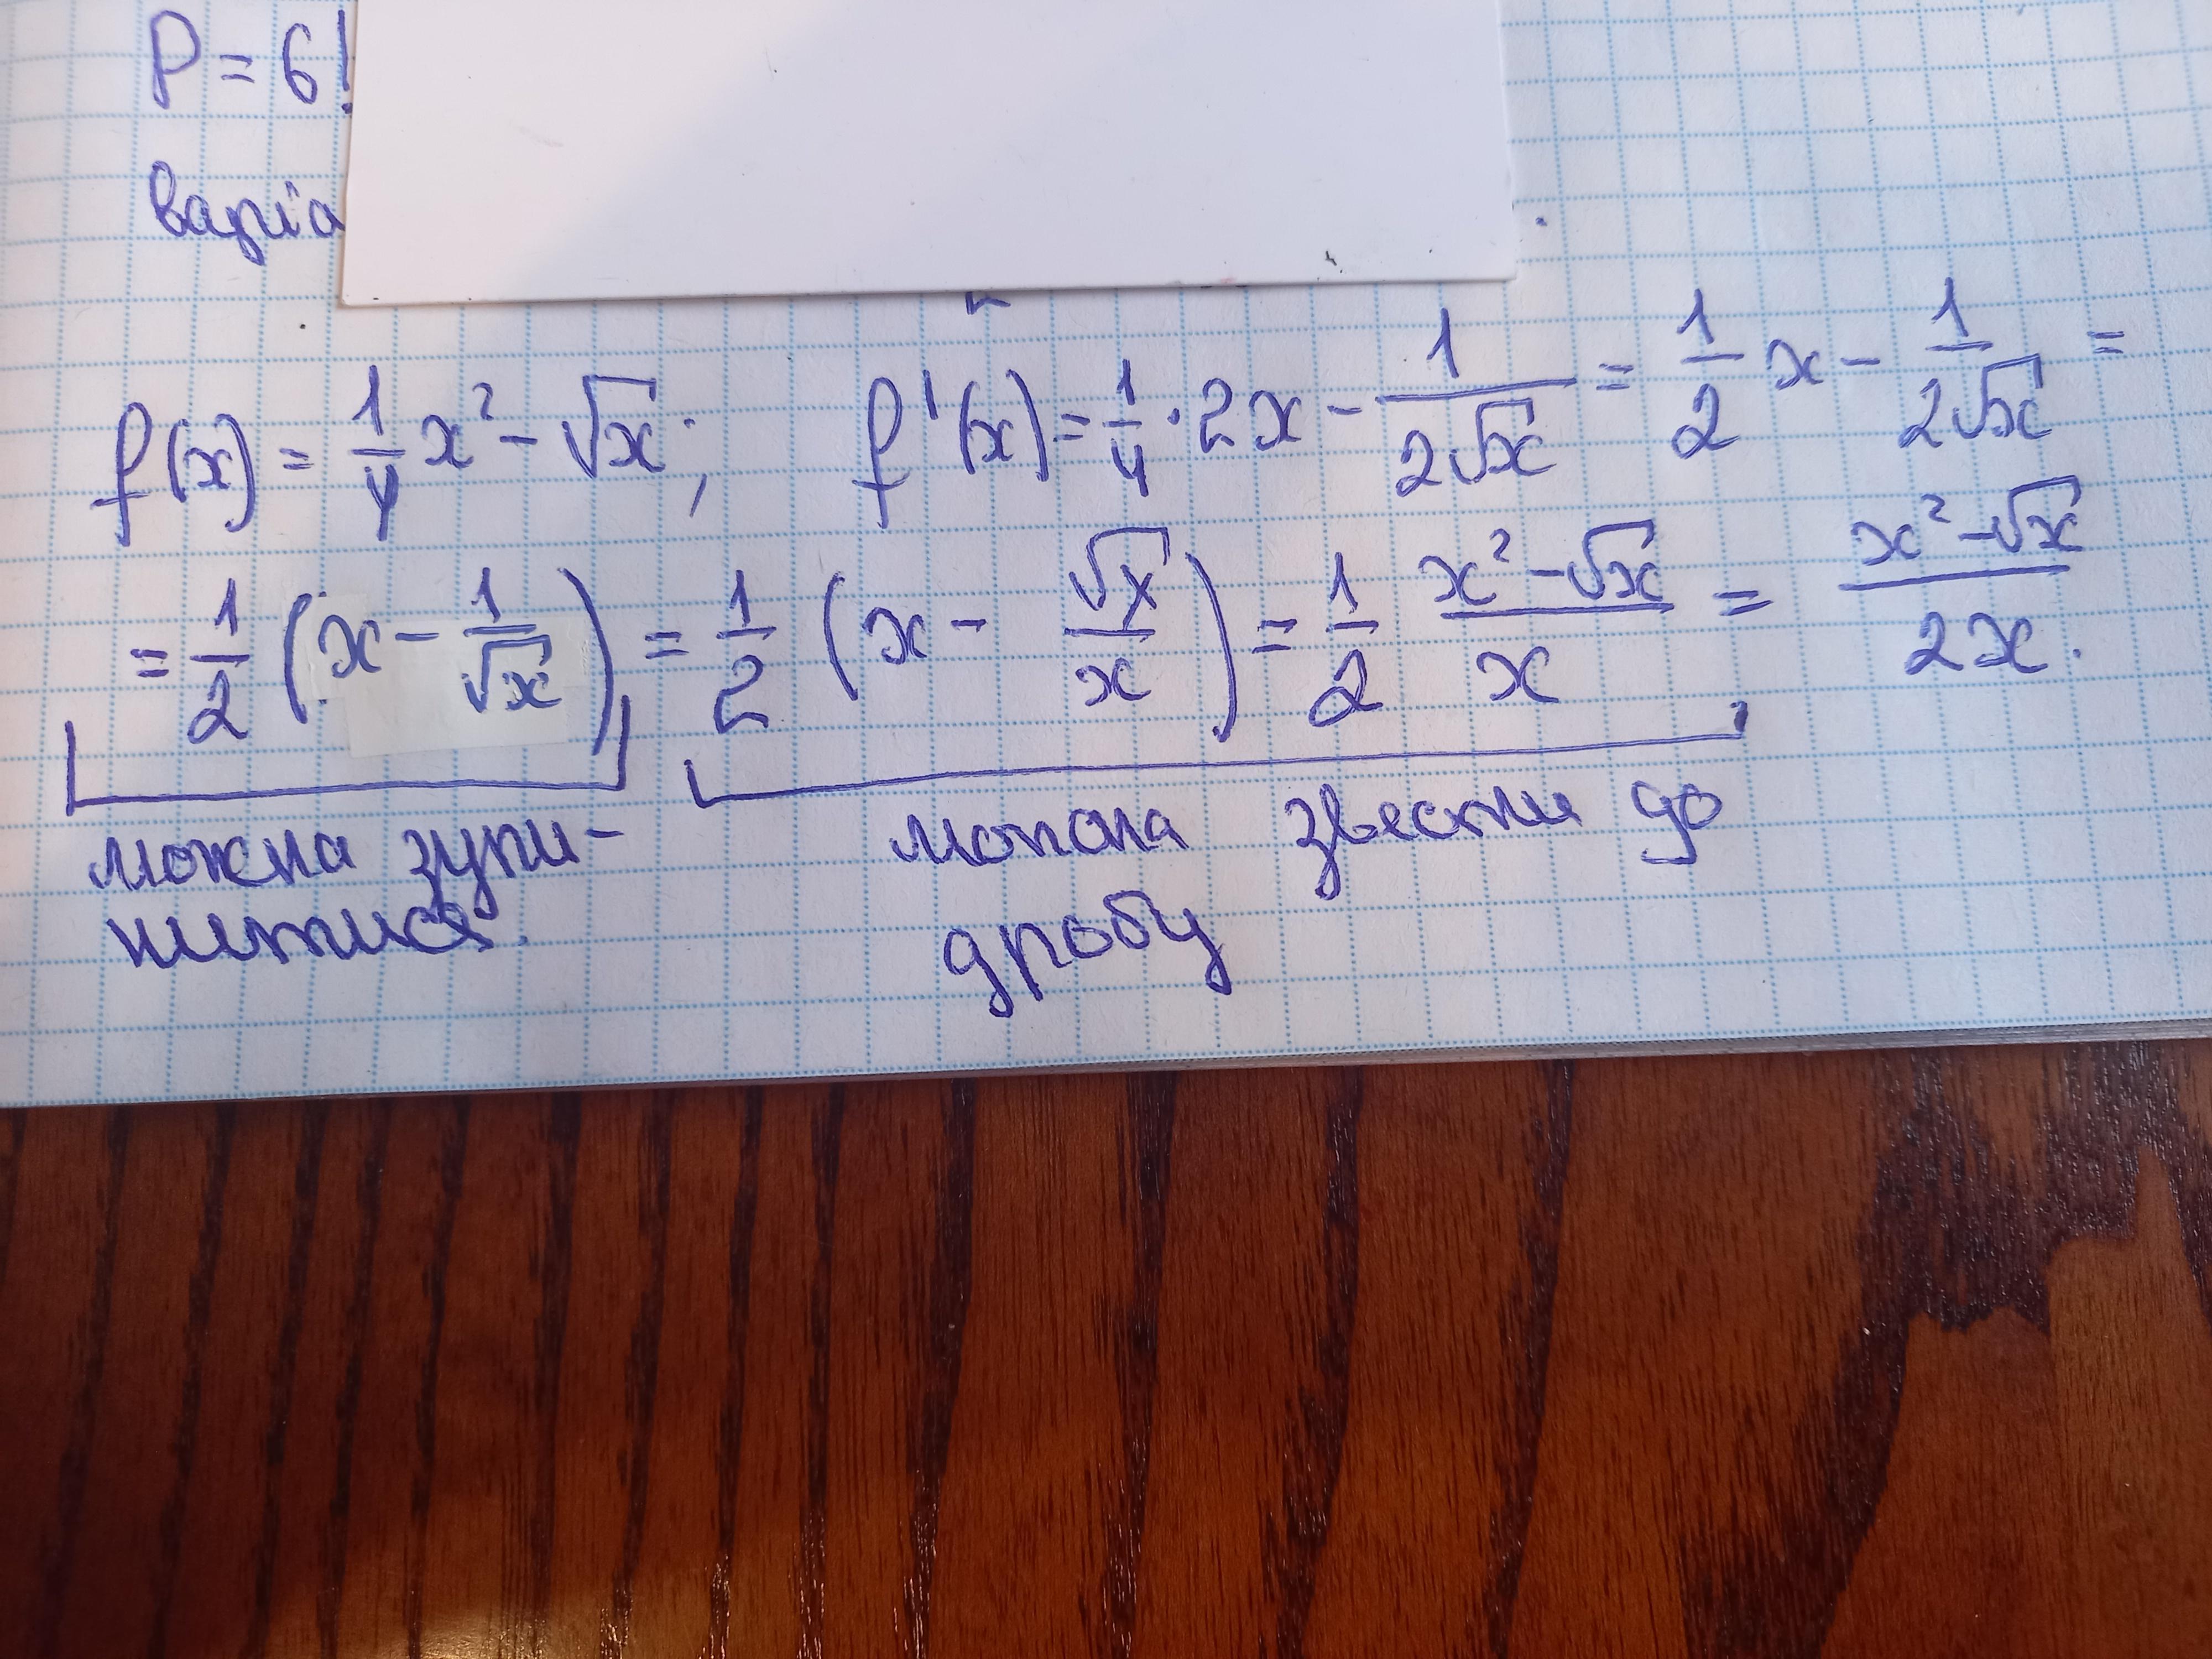 P = 6!
варіа
f(x) = 1/4 x² - √x; f'(x) = 1/4 · 2x - 1/(2√x) = 1/2 x - 1/(2√x) =
= 1/2 (x - 1/√x) = 1/2 (x - √x/x) = 1/2 (x² - √x)/x = (x² - √x)/(2x).
можна зупи-
нитися.
можна звести до
дробу